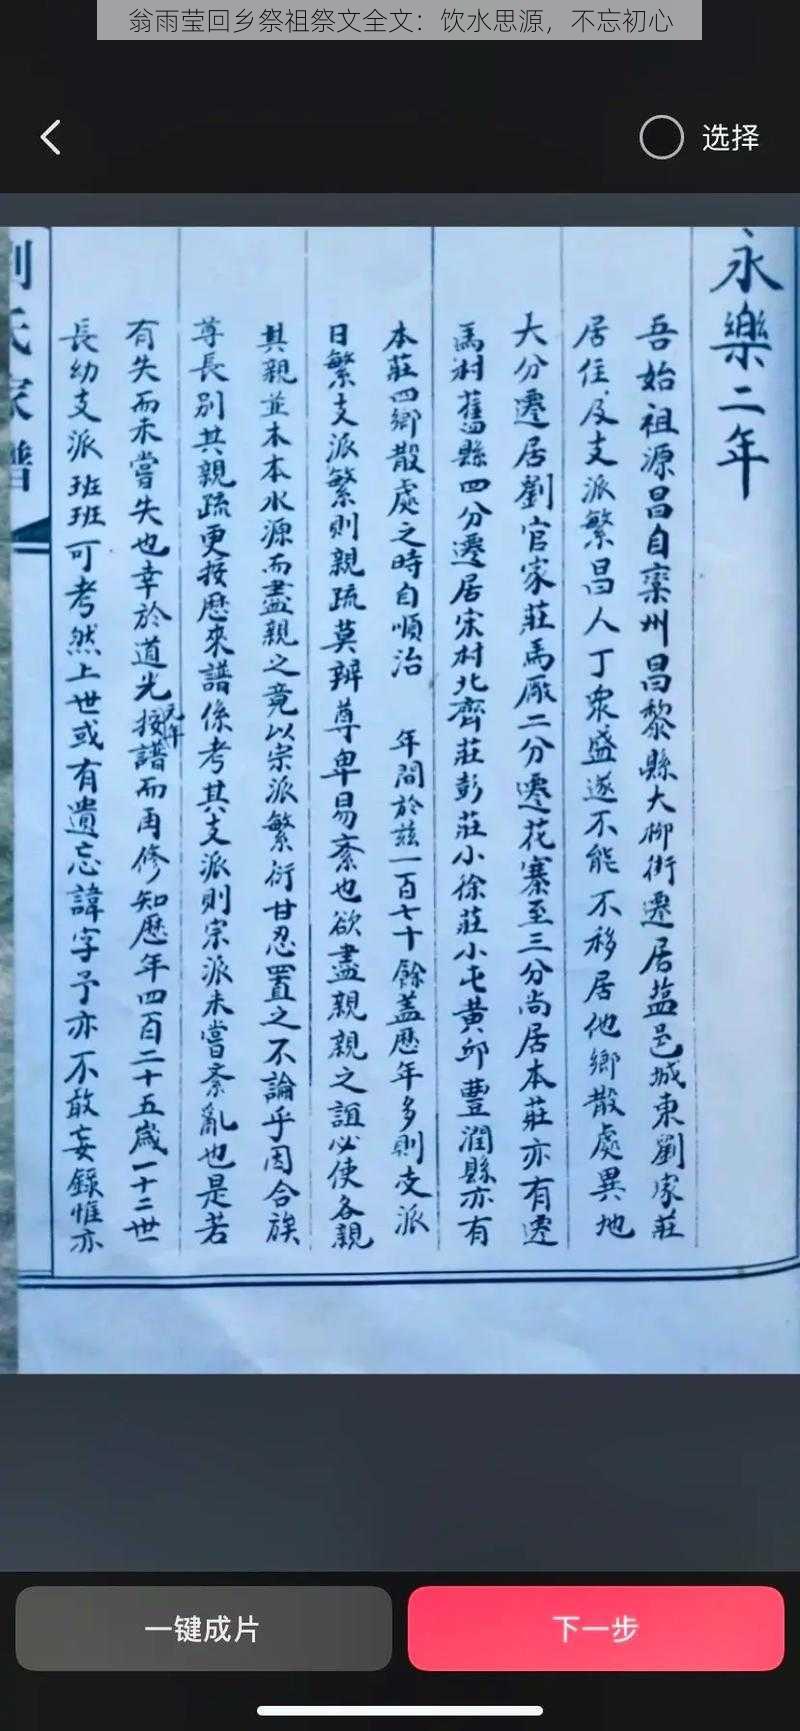 翁雨莹回乡祭祖祭文全文：饮水思源，不忘初心
选择
永樂二年
吾始祖源昌自灤州昌黎縣大柳街遷居盐邑城東劉家莊
居住及支派繁昌人丁衆盛遂不能不移居他鄉散處異地
大分遷居劉官家莊馬厰二分遷花寨至三分尚居本莊亦有遷
馬村舊縣四分遷居宋村北齊莊彭莊小徐莊小屯黄邱豐潤縣亦有
本莊四鄉散處之時自順治 年間於兹一百七十餘蓋歷年多則支派
日繁支派繁則親疏莫辨尊卑易紊也欲盡親親之誼必使各親
其親並木本水源而盡親之竟以宗派繁衍甘忍置之不論乎因合族
尊長别其親疏更按歷來譜係考其支派則宗派未嘗紊亂也是若
有失而未嘗失也幸於道光元年按譜而再修知歷年四百二十五歲一十二世
長幼支派班班可考然上世或有遺忘諱字予亦不敢妄錄惟亦
劉氏家譜
一键成片
下一步